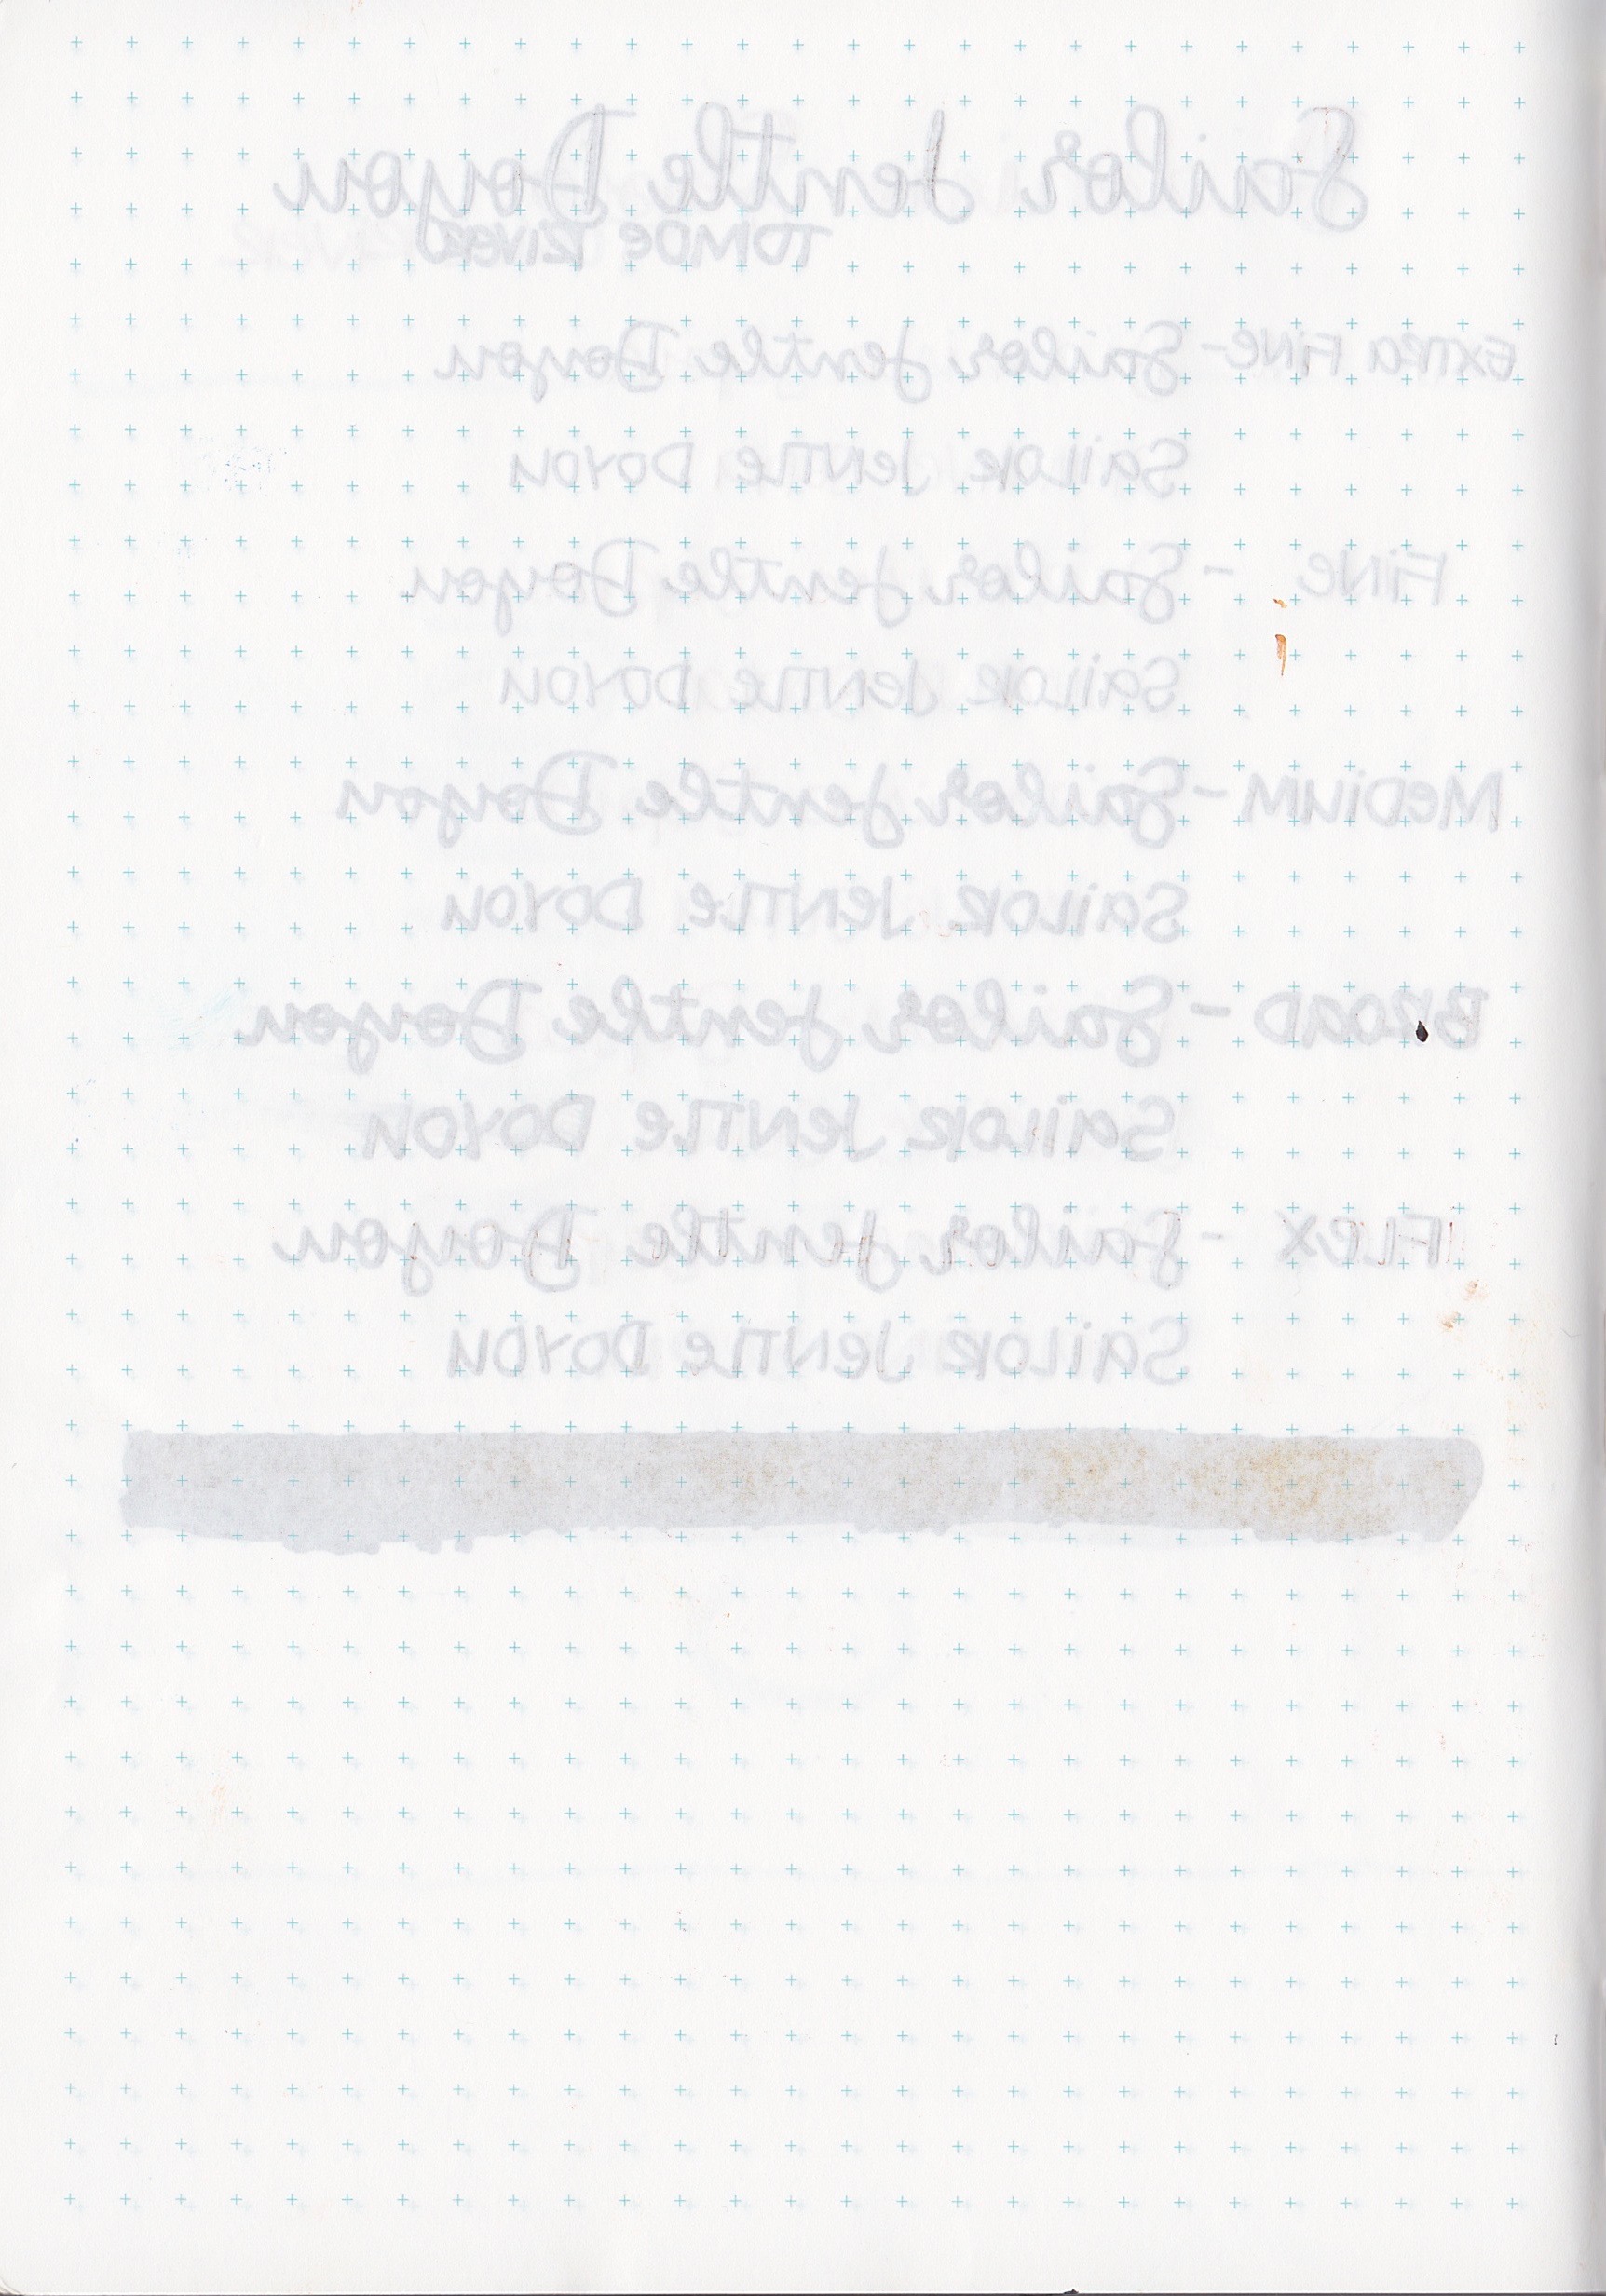 Sailor Jentle Doyou
TOMOE RIVER
EXTRA FINE - Sailor Jentle Doyou
SAILOR JENTLE DOYOU
FINE - Sailor Jentle Doyou
SAILOR JENTLE DOYOU
MEDIUM - Sailor Jentle Doyou
SAILOR JENTLE DOYOU
BROAD - Sailor Jentle Doyou
SAILOR JENTLE DOYOU
FLEX - Sailor Jentle Doyou
SAILOR JENTLE DOYOU